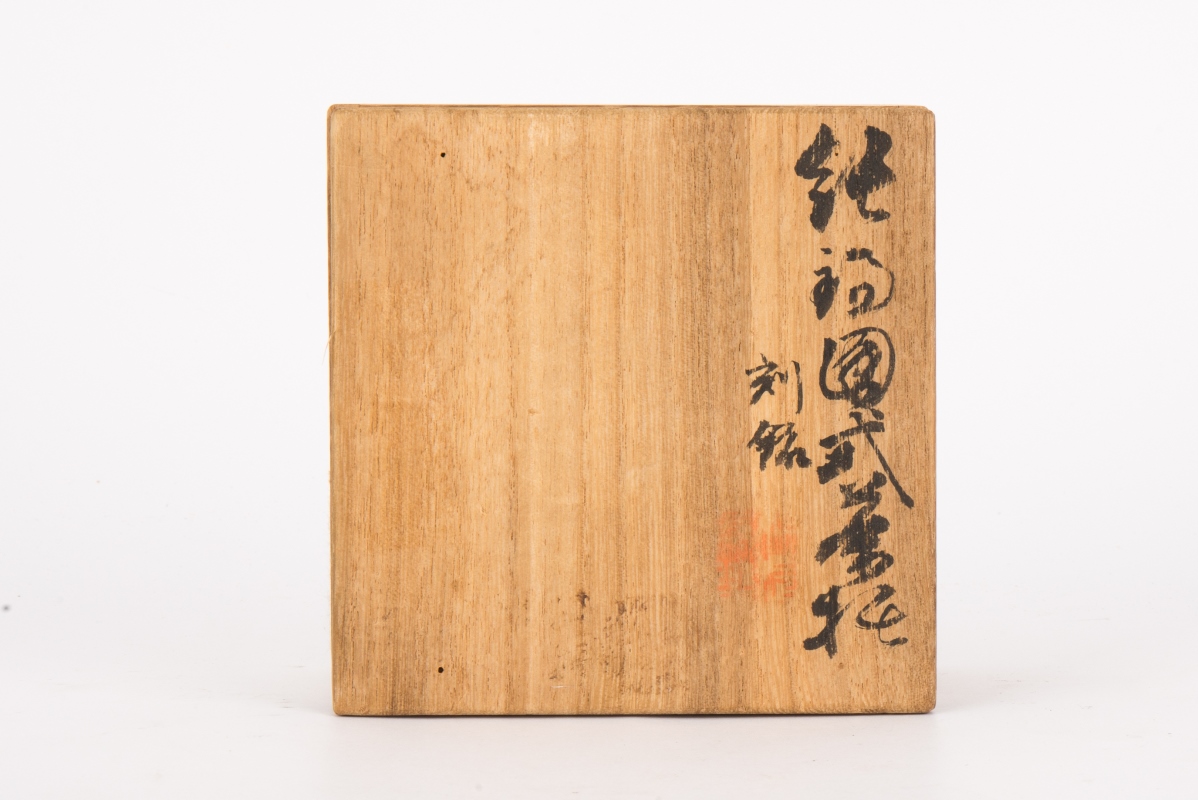 純錫圓式茶托
刻銘